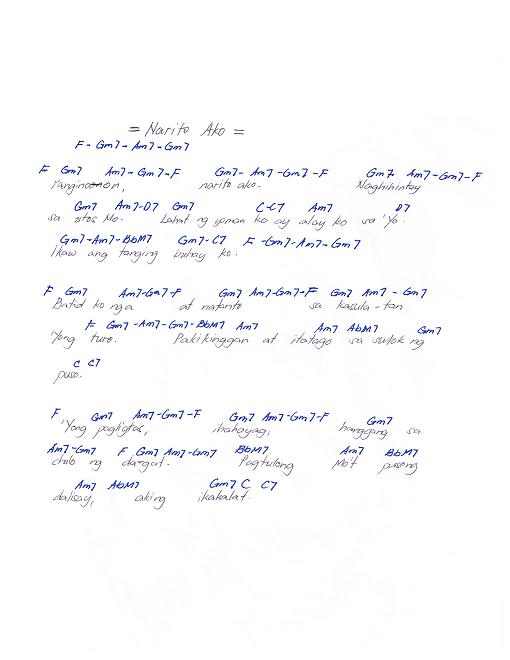 = Narito Ako =
F - Gm7 - Am7 - Gm7
F Gm7 Am7 - Gm7 - F Gm7 - Am7 - Gm7 - F Gm7 Am7 - Gm7 - F
Panginoon, narito ako. Naghihintay
Gm7 Am7-D7 Gm7 C-C7 Am7 D7
sa utos Mo. Lahat ng yaman ko ay alay ko sa 'Yo.
Gm7-Am7-BbM7 Gm7-C7 F-Gm7-Am7-Gm7
Ikaw ang tanging buhay ko.
F Gm7 Am7-Gm7-F Gm7 Am7-Gm7-F Gm7 Am7 - Gm7
Batid ko nga at natanto sa kasula-tan
F Gm7 -Am7-Gm7-BbM7 Am7 Am7 AbM7 Gm7
'Yong turo. Pakikinggan at itatago sa sulok ng
C C7
puso.
F Gm7 Am7-Gm7-F Gm7 Am7-Gm7-F Gm7
'Yong pagligtas, ihahayag, hanggang sa
Am7-Gm7 F Gm7 Am7-Gm7 BbM7 Am7 BbM7
dulo ng da-gat. Pagtulong Mo't pusong
Am7 AbM7 Gm7 C C7
dalisay, aking ikakalat.